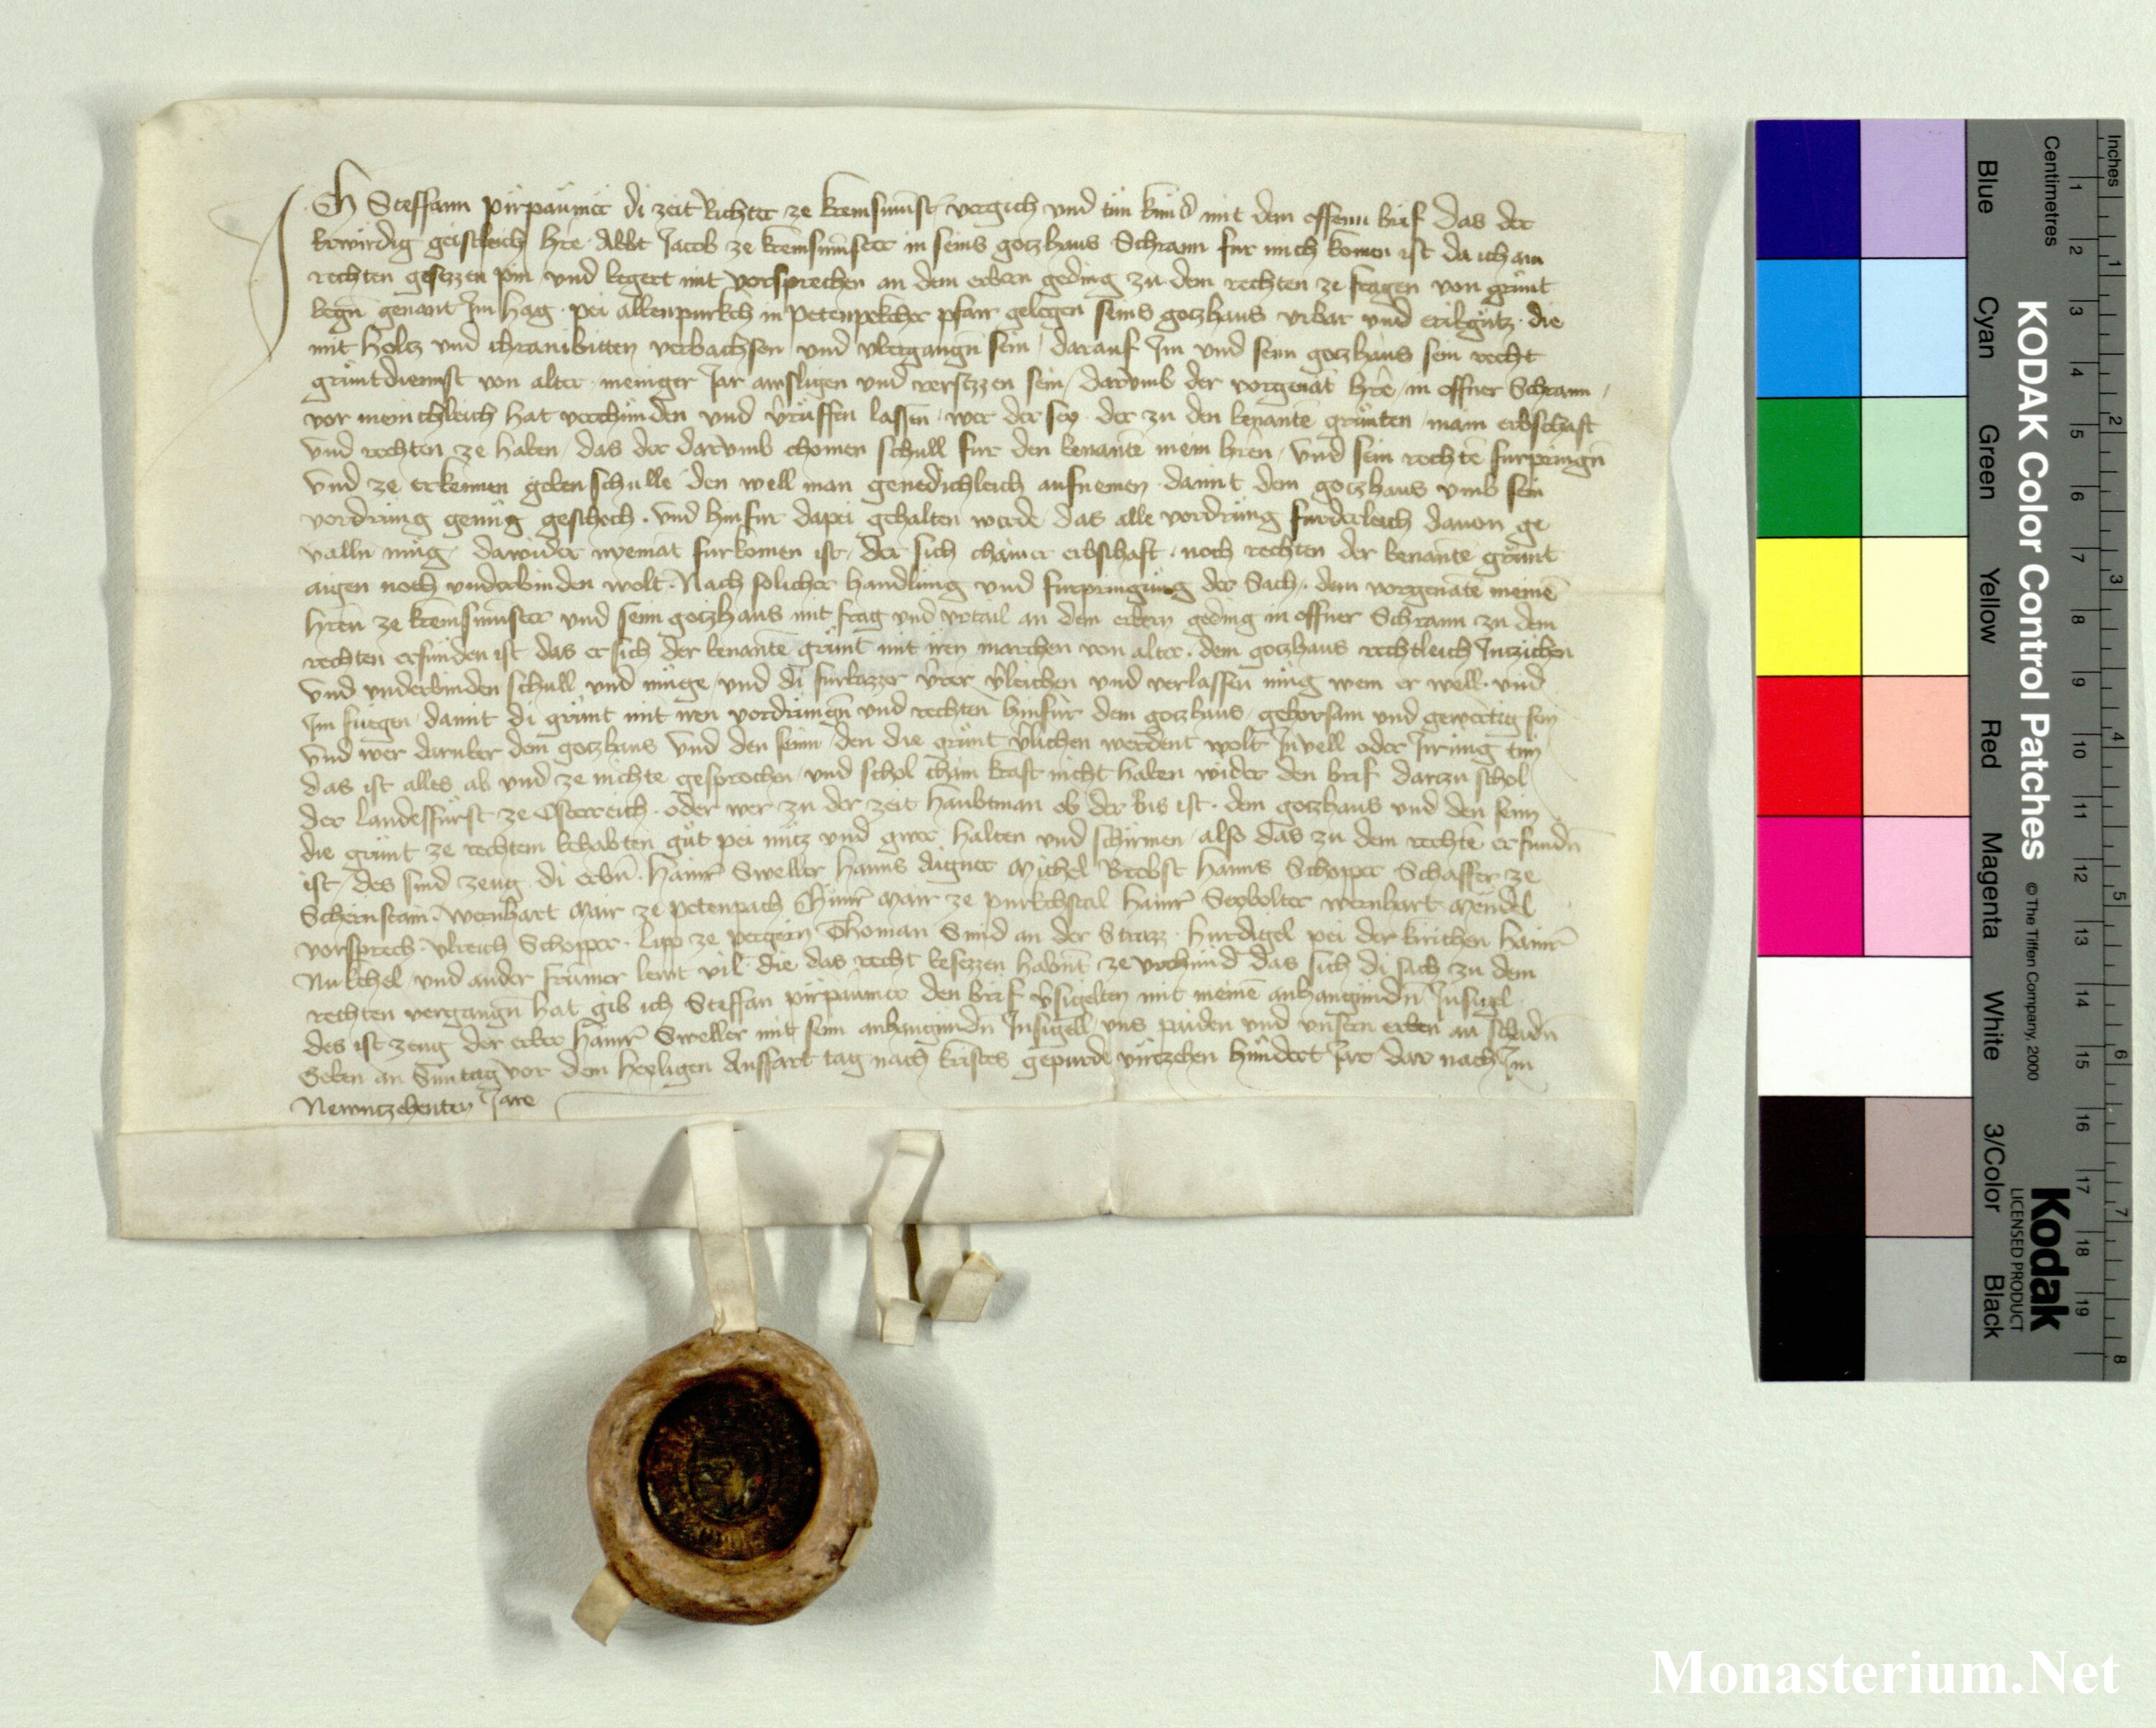 Ich Steffann pirpaumer di zeit Richter ze kremsmunster vergich und tun kund mit dem offenn brief das der
Erwirdig geistleich hre Abbt Jacob ze kremsmunster in seins gotzhaus Schrann fur mich komen ist da ich an
rechten gesezzen pin und begert mit vorsprechen an dem erbern geding zu dem rechten ze fragen von grunt
wegn genant Im hag pei altenpurkch in petenpekcher pfarr gelegen seins gotzhaus urbar und die
mit holtz und verbachsen und ubergangn sein darauf Im und seim gotzhaus sein recht
gruntdiennst von alter meniger Jar ausligen und versezzen sein darumb der vorgenant hre in offner Schrann
vor menichleich hat verchunden und vruffen lassen wer der sey der zu den benante grunten main erbschaft
und rechten ze haben das der darumb chomen schull fur den benante mein hren und sein rechte furpringn
und ze erkennen geben schulle den well man genedichleich aufnemen damit dem gotzhaus umb sein
vordrung genug geschech und hinfur dapei gehalten werde das alle vordrung furderleich davon ge
valln mug dawider nyemat furkomen ist der sich chainer erbschaft noch rechten der benante grunt
aigen noch underbinden wolt Nach solicher handlung und furpringung der Sach dem vorgenate meine
hren ze kremsmunster und seim gotzhaus mit frag und urtail an dem erbern geding in offner Schrann zu dem
rechten erfunden ist das er sich der benante grunt mit iren marchen von alter dem gotzhaus rechtleich Inziehen
und underbinden schull und muge und di furbazzer vrer vleichen und verlassen mug wem er well und
Im fuegen damit di grunt mit iren vordrungn und rechten hinfur dem gotzhaus gehorsam und gewertig sein
und wer daruber dem gotzhaus und den seinn den die grunt vlichen werdent wolt Invell oder Irrung tun
das ist alles ab und ze nichte gesprochen und schol chain kraft nicht haben wider den brief darzu schol
der landesfurst ze Osterreich oder wer zu der zeit haubtman ob der ens ist dem gotzhaus und den seinn
die grunt ze rechtem behabten gut pei nutz und gwer halten und schirmen also das zu dem rechte erfundn
ist des sind zeug di erbn hainr Sweller hanns Aigner Michel Brobst hanns Schopper Schaffer ze
Scheinstain Wernhart Mair ze petenpach Chunr Mair ze purkchstal hainr Seybolter wernhart Mendel
vorsprech Ulreich Schopper lipp ze pergern Thoman Smid an der Strazz hurdigel pei der kirichen hainr
Nukchel und ander frumer lewt vil die das recht besezzen habnt ze urchund das sich di sach zu dem
rechten vergangn hat gib ich Steffan pirpaumer den brief vsigelten mit meine anhangundn Insigel
des ist zeug der erber hainr Sweller mit seim anhangundn Insigell uns paiden und unsern erben an schadn
Geben an Suntag vor dem heyligen Auffart tag nach kristes gepurde virtzehen hundert Jar dar nach Im
Newntzehenten Jare
KODAK Color Control Patches © The Tiffen Company, 2000
Kodak
LICENSED PRODUCT
Inches 1 2 3 4 5 6 7 8
Centimetres 1 2 3 4 5 6 7 8 9 10 11 12 13 14 15 16 17 18 19
Blue Cyan Green Yellow Red Magenta White 3/Color Black
Monasterium.Net